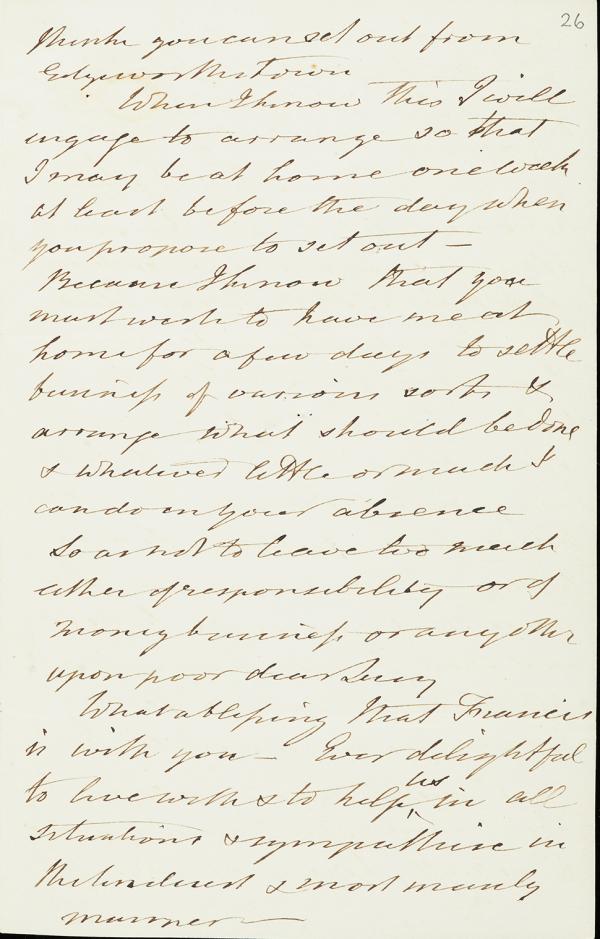 26
think you can set out from
Edgeworthstown
When I know this I will
engage to arrange so that
I may be at home one week
at least before the day when
you propose to set out —
Because I know that you
must wish to have me at
home for a few days to settle
business of various sorts &
arrange what should be done
& whatever little or much I
can do in your absence
so as not to leave too much
either of responsibility or of
money business or any other
upon poor dear Lucy
What a blessing that Francis
is with you — Ever delightful
to live with & to help us in all
situations & sympathise in
the tenderest & most manly
manner —